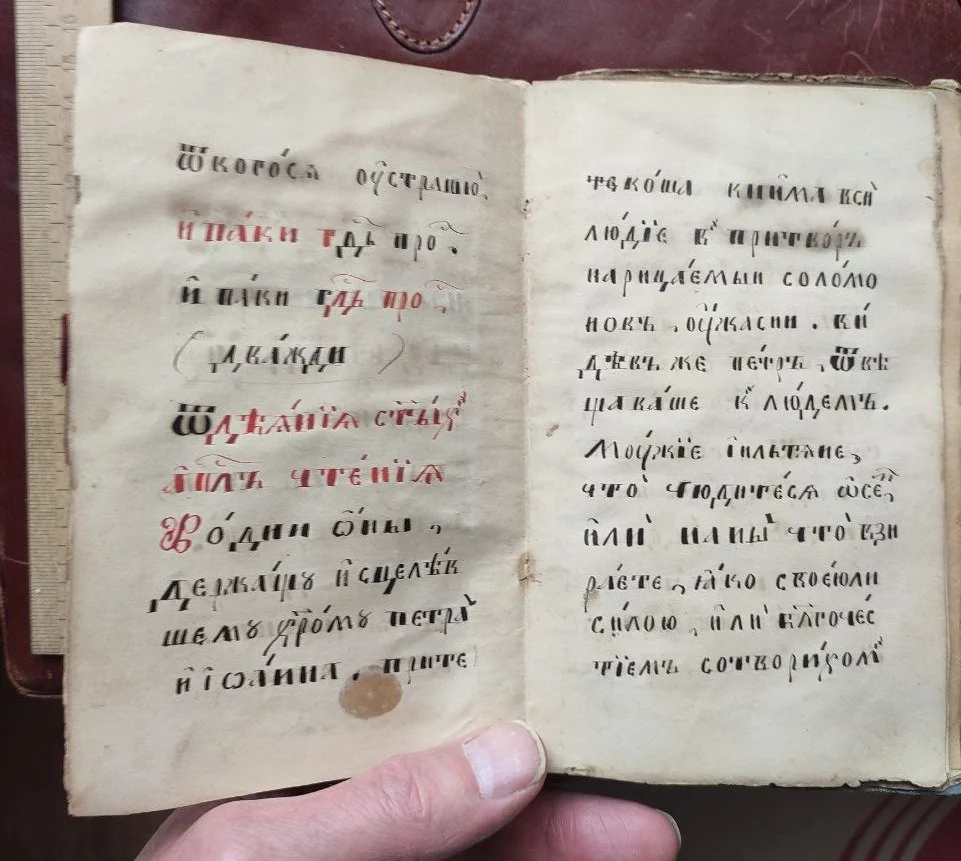 ѿкого́сѧ оу҆страшꙋ̀.
И҆ па́ки гдⷭ҇ь про҃.
и҆ па́ки гдⷭ҇ь про҃.
( два́жди )
ѿдѣѧ́нїѧ ст҃ы́хъ
а҆пⷭ҇лъ чте́нїѧ
Во́дни ѻ҆́ны,
держа́щꙋ и҆сцелѣ́в
шемꙋ хромо́мꙋ петра̀
и҆ і҆ѡа́нна, прите
теко́ша книма всѝ
лю́дїе въ притво́ръ
нарица́емыи соло́мо
новъ, оу҆́жасни. ви́
дѣвъ же пе́тръ, ѿвѣ
щава́ше къ лю́демъ.
Мꙋ́жїе і҆ильтѧне,
что̀ чюдите́сѧ ѡ҆се́мъ,
и҆лѝ на ны̀ что̀ взи
ра́ете, ꙗ҆́ко свое́юли
си́лою, и҆лѝ бл҃гочес́
тїемъ сотвори́хомъ